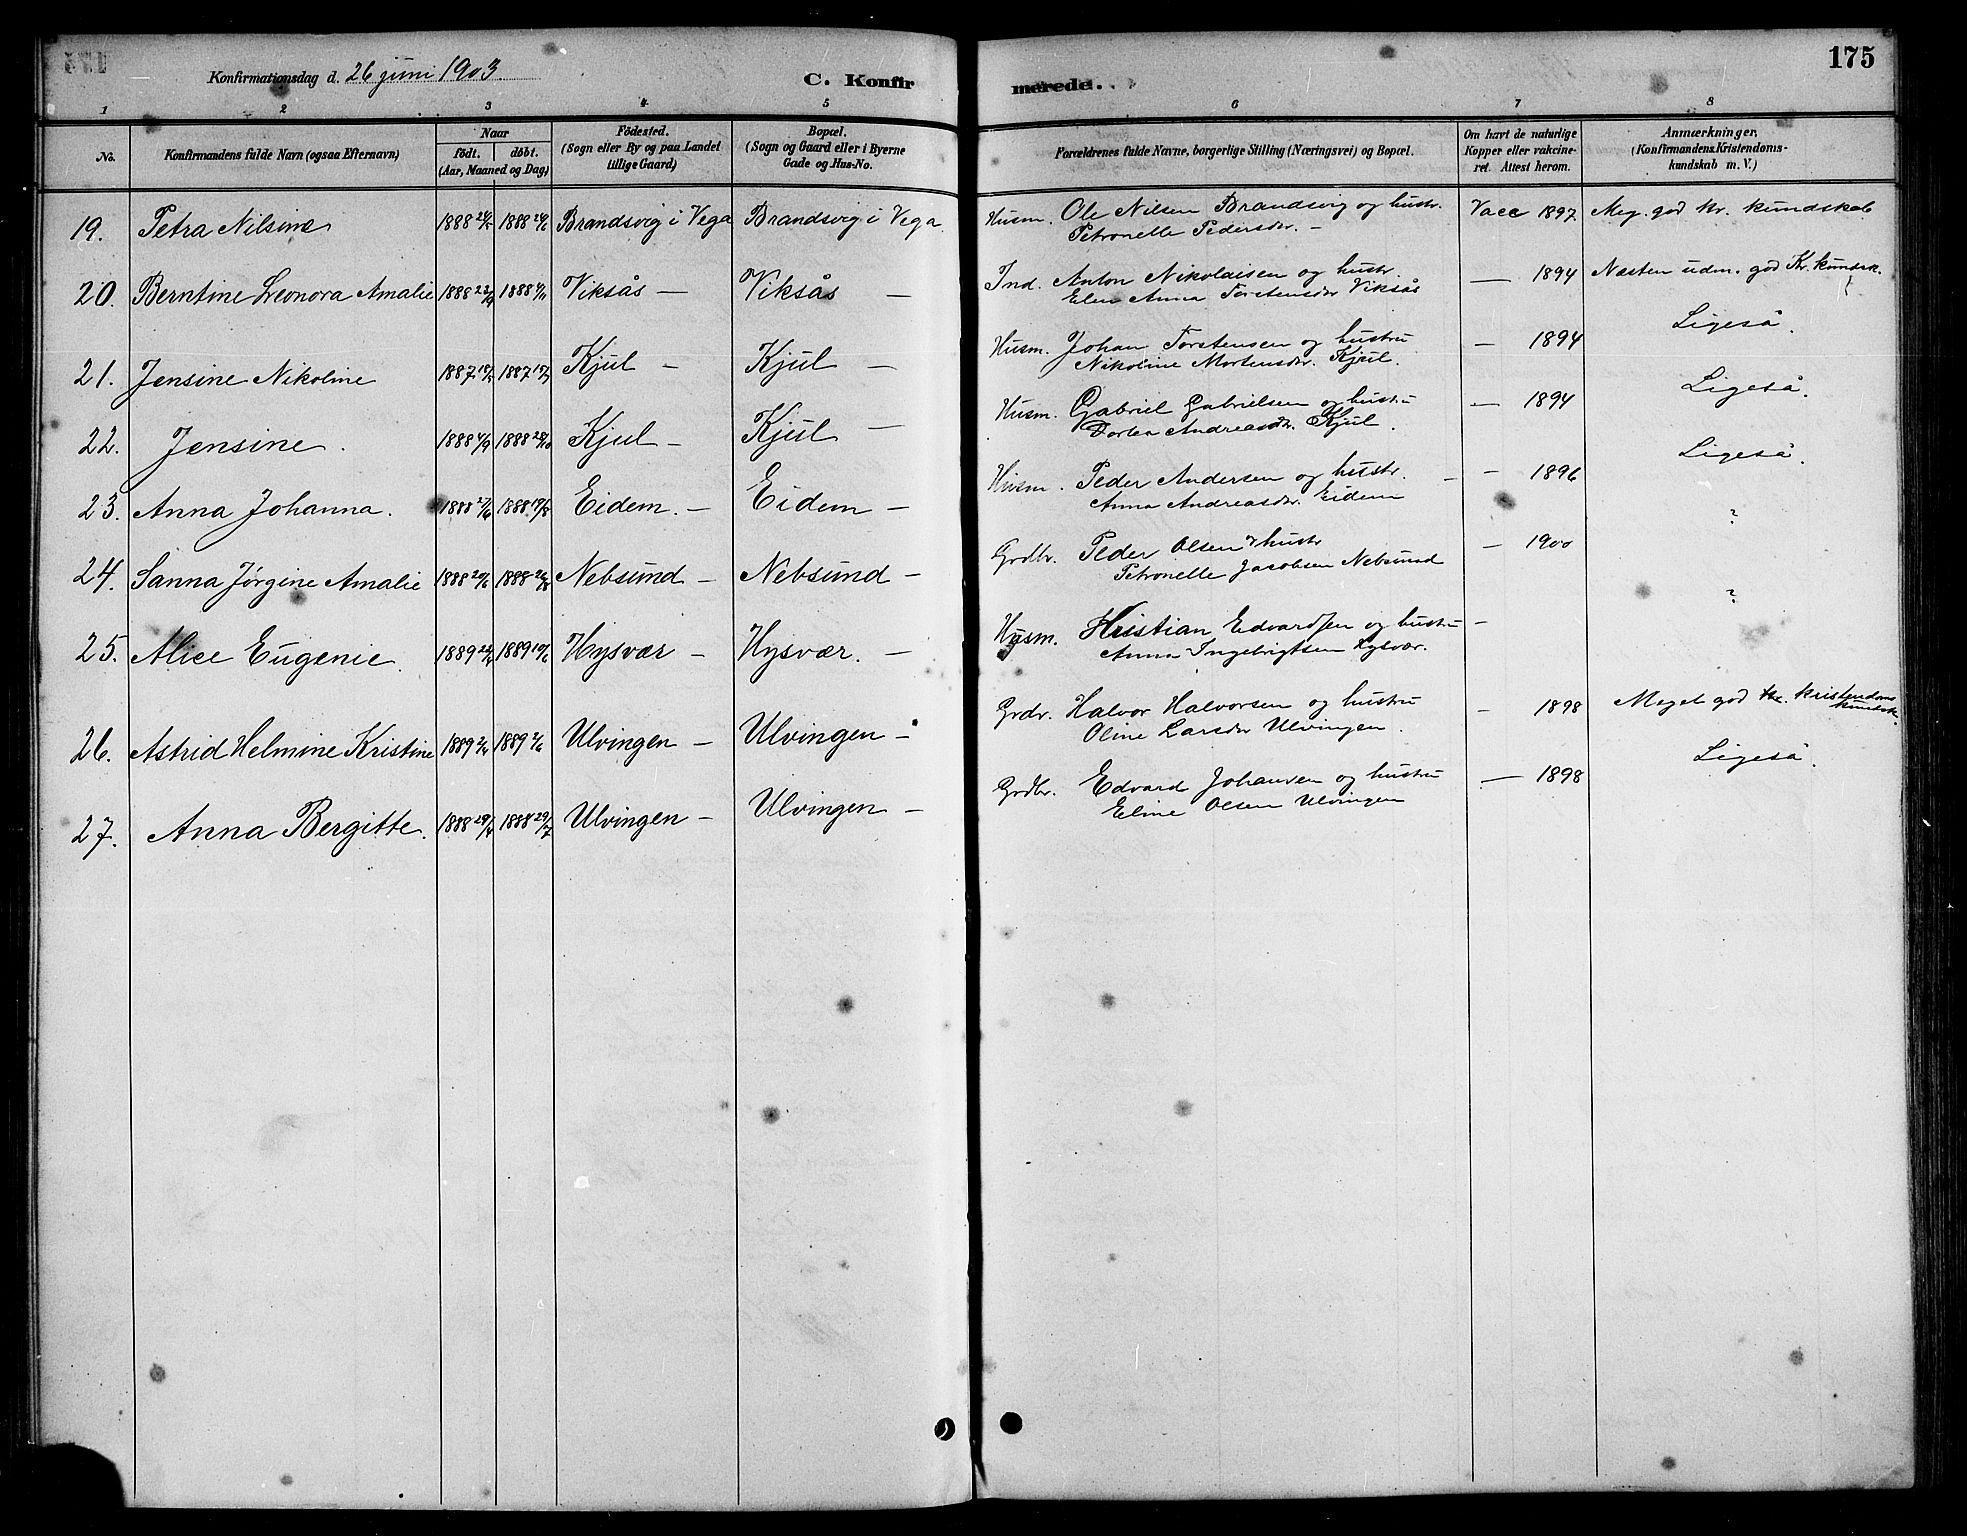 Konfirmationsdag d. 26 juni 1903.
C. Konfirmerede.
175
1 2 3 4 5 6 7 8
No.
Konfirmandens fulde Navn (ogsaa Efternavn)
Naar
födt. döbt.
(Aar, Maaned og Dag)
Födested.
(Sogn eller By og paa Landet
tillige Gaard)
Bopæl.
(Sogn og Gaard eller i Byerne
Gade og Hus-No.
Forældrenes fulde Navne, borgerlige Stilling (Næringsvei) og Bopæl.
Om havt de naturlige
Kopper eller vakcine-
ret. Attest herom.
Anmærkninger,
(Konfirmandens Kristendoms-
kundskab m. V.)
19. Petra Nilsine 1888 1888 Brandsvig i Vega Brandsvig i Vega Husm. Ole Nilsen Brandsvig og hustr. Vacc 1897. Meg. god kr. kundskab
Petronelle Pedersdr. —
20. Berntine Leonora Amalie 1888 1888 Viksås — Viksås — Ind. Anton Nikolaisen og hustr. — 1894 Næsten udm. god Kr. kundsk.
Elen Anna Torstensdr Viksås
21. Jensine Nikoline 1887 1887 Kjul — Kjul — Husm. Johan Torstensen og hustru — 1894 Ligeså.
Nikoline Mortensdr. Kjul.
22. Jensine. 1888 1888 Kjul — Kjul — Husm. Gabriel Gabrielsen og hustru — 1894 Ligeså.
Dortea Andreasdr. Kjul.
23. Anna Johanna. 1888 27/6 1888 19/8 Eidem. — Eidem — Husm. Peder Andersen og hustr. — 1896 Ligeså.
Anna Andreasdr. Eidem
24. Sanna Jørgine Amalie 1888 1888 Nebsund — Nebsund — Grdbr. Peder Olsen & hustr — 1900 ?
Petronelle Jacobsen Nebsund
25. Alice Eugenie. 1889 1889 Hysvær — Hysvær. — Husm. Kristian Edvardsen og hustru — ?
Anna Ingebrigtsen Hysvær.
26. Astrid Helmine Kristine 1889 1889 Ulvingen — Ulvingen — Grdr. Halvor Halvorsen og hustru — 1898 Meget god kristendoms
kundsk.
Oline Larsdr Ulvingen.
27. Anna Bergitte. 1888 1888 29/7 Ulvingen — Ulvingen — Grdbr. Edvard Johansen og hustru — 1898 Ligeså.
Eline Olsen Ulvingen